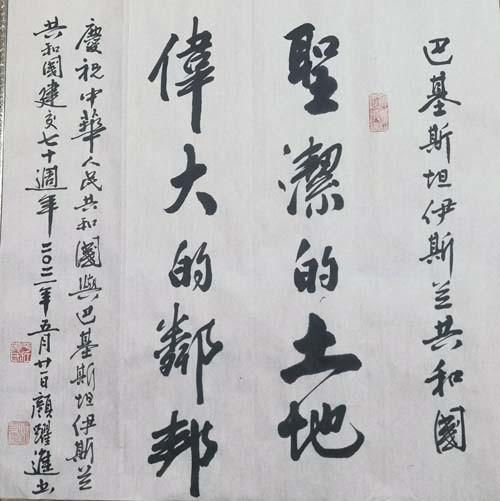 巴基斯坦伊斯兰共和國
聖潔的土地
偉大的鄰邦
慶祝中華人民共和國與巴基斯坦伊斯兰
共和國建交七十週年二〇二一年五月廿一日顏躍進书